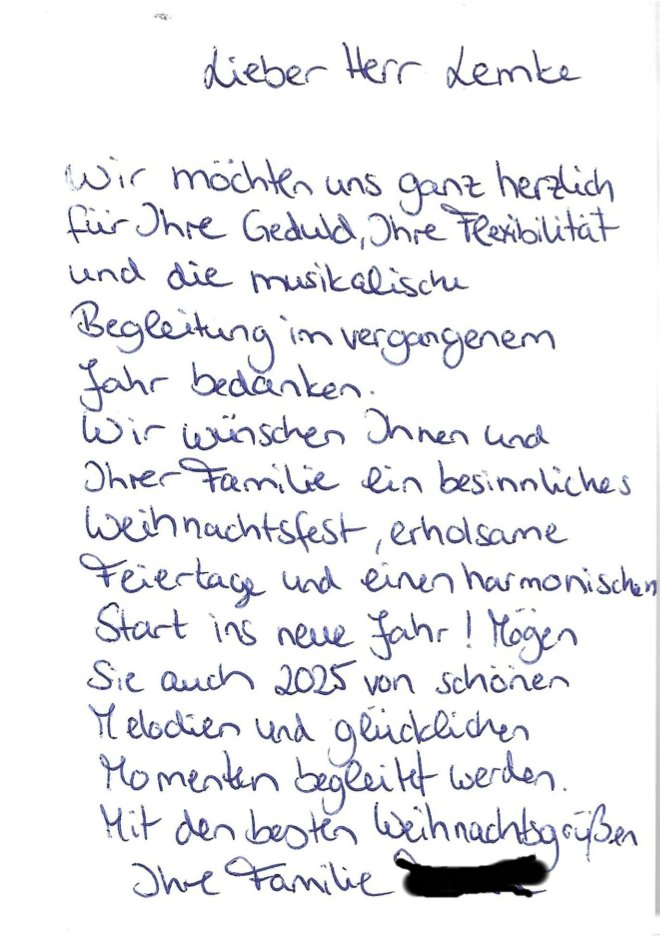 Lieber Herr Lemke
Wir möchten uns ganz herzlich
für Ihre Geduld, Ihre Flexibilität
und die musikalische
Begleitung im vergangenem
Jahr bedanken.
Wir wünschen Ihnen und
Ihrer Familie ein besinnliches
Weihnachtsfest, erholsame
Feiertage und einen harmonischen
Start ins neue Jahr! Mögen
Sie auch 2025 von schönen
Melodien und glücklichen
Momenten begleitet werden.
Mit den besten Weihnachtsgrüßen
Ihre Familie